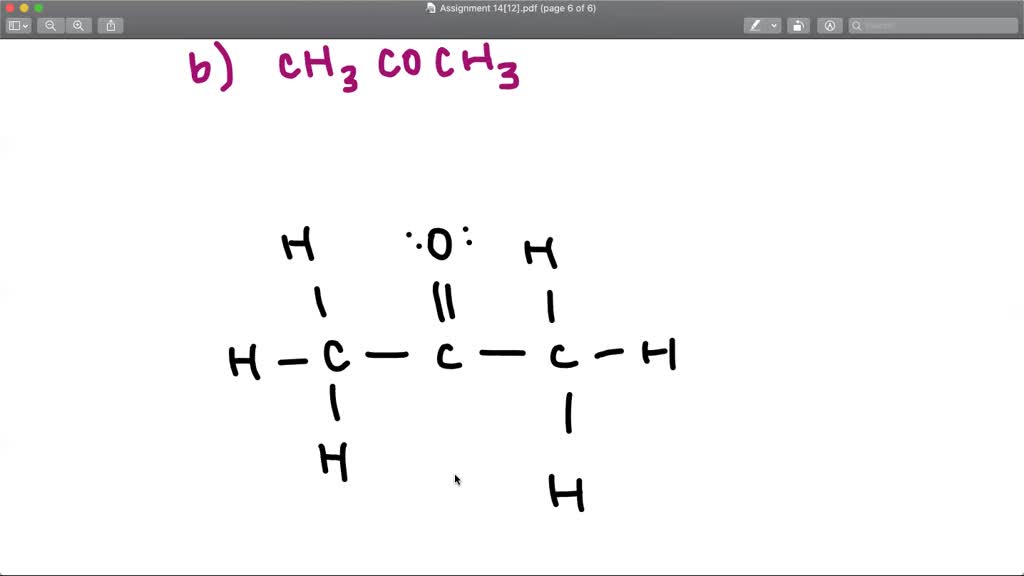 Assignment 14[12].pdf (page 6 of 6)
Search
b) CH3 COCH3
H :O: H
||
H – C – C – C – H
H
H